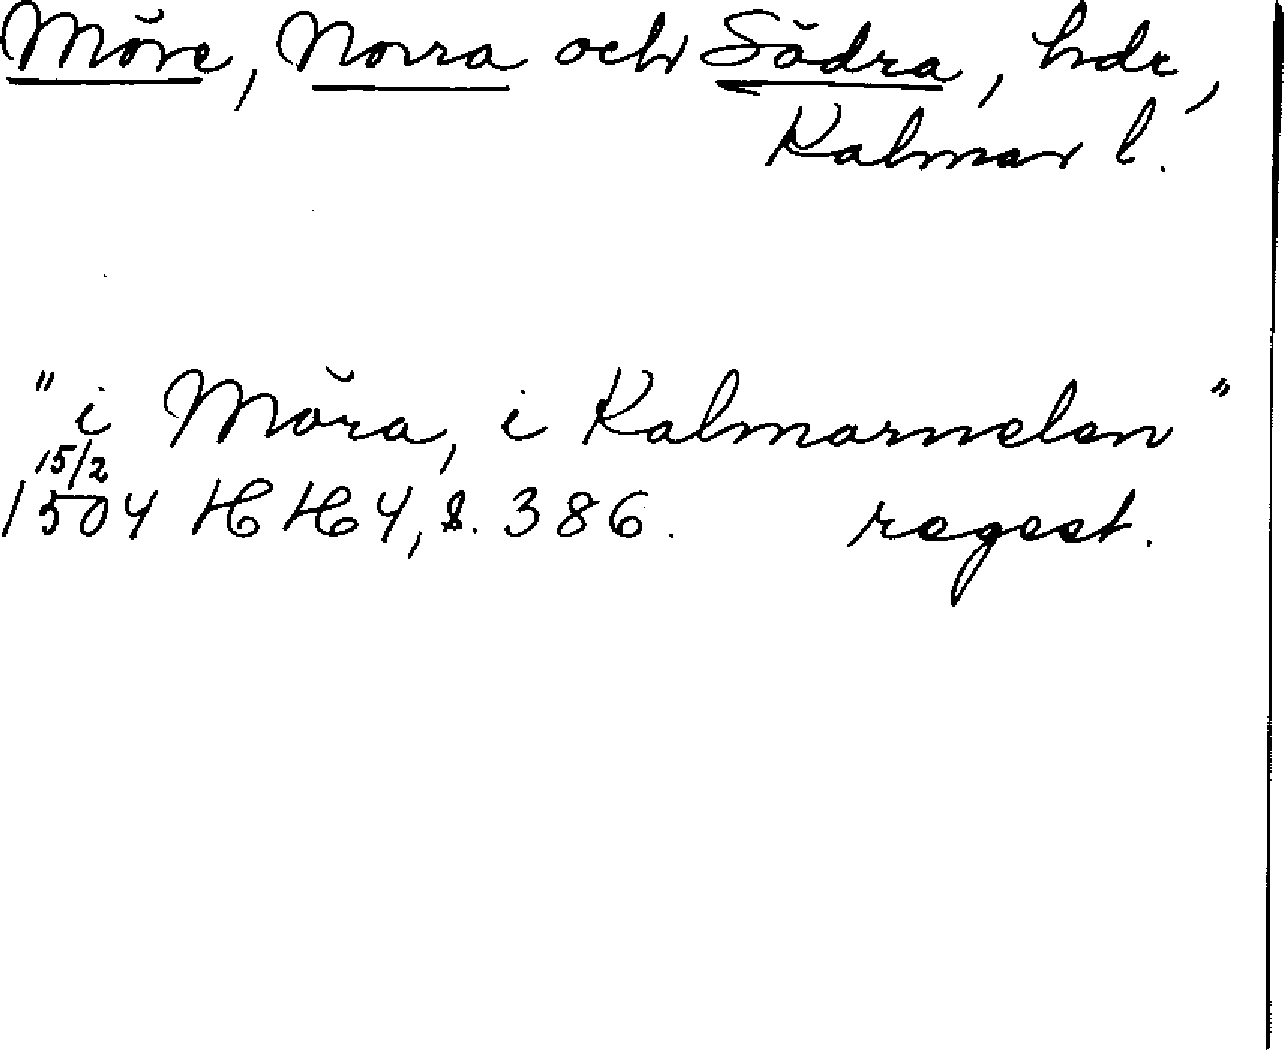 Möre, Norra och Södra, hdr,
Kalmar l.
"i Möra, i Kalmarnelen"
15/2
1504 HH 4, s. 386. regest.